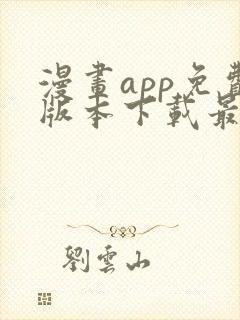 漫畫app免費
版本下載最
劉雲山